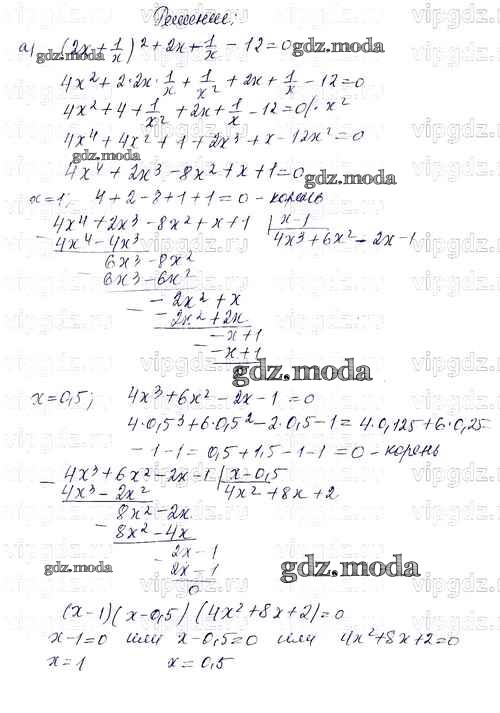 Решение:
а) (2x + 1/x)² + 2x + 1/x - 12 = 0
gdz.moda gdz.moda
4x² + 2·2x·1/x + 1/x² + 2x + 1/x - 12 = 0
4x² + 4 + 1/x² + 2x + 1/x - 12 = 0 /· x²
4x⁴ + 4x² + 1 + 2x³ + x - 12x² = 0
gdz.moda
4x⁴ + 2x³ - 8x² + x + 1 = 0
gdz.moda
x = 1; 4 + 2 - 8 + 1 + 1 = 0 - корень
4x⁴ + 2x³ - 8x² + x + 1 | x - 1
- 4x⁴ - 4x³ 4x³ + 6x² - 2x - 1
6x³ - 8x²
- 6x³ - 6x²
- 2x² + x
- - 2x² + 2x
- x + 1
- - x + 1
gdz.moda
x = 0,5; 4x³ + 6x² - 2x - 1 = 0
4·0,5³ + 6·0,5² - 2·0,5 - 1 = 4·0,125 + 6·0,25
- 1 - 1 = 0,5 + 1,5 - 1 - 1 = 0 - корень
- 4x³ + 6x² - 2x - 1 | x - 0,5
4x³ - 2x² 4x² + 8x + 2
8x² - 2x
- 8x² - 4x
2x - 1
- 2x - 1
0
gdz.moda gdz.moda
(x - 1)(x - 0,5)(4x² + 8x + 2) = 0
x - 1 = 0 или x - 0,5 = 0 или 4x² + 8x + 2 = 0
x = 1 x = 0,5